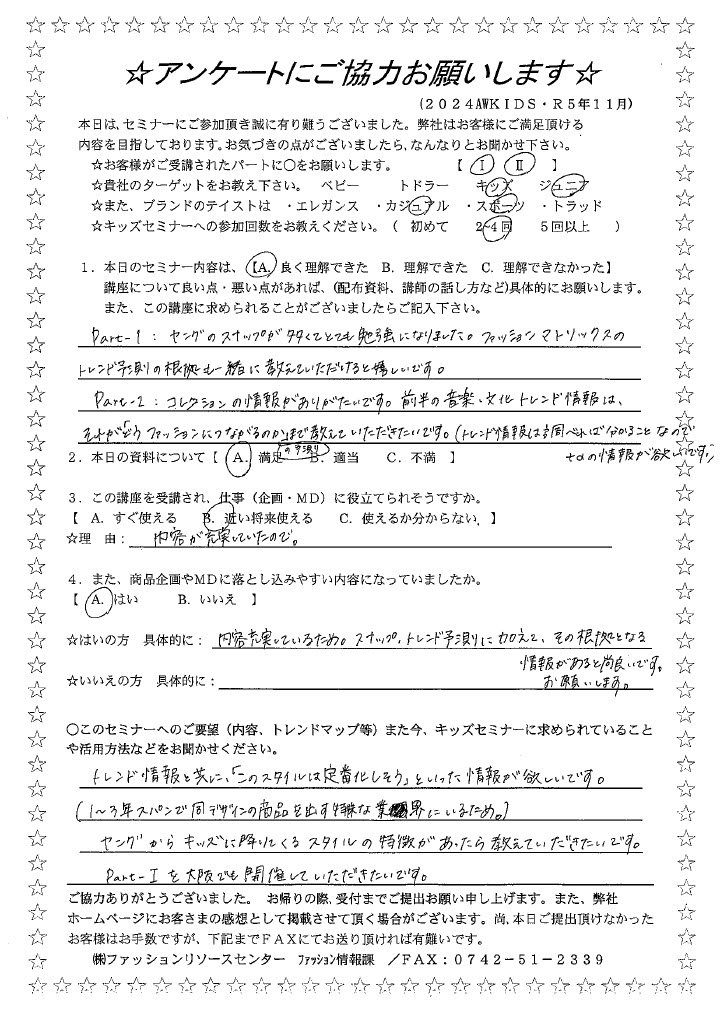 ☆アンケートにご協力お願いします☆
(2024AWKIDS・R5年11月)
本日は、セミナーにご参加頂き誠に有り難うございました。弊社はお客様にご満足頂ける
内容を目指しております。お気づきの点がございましたら、なんなりとお聞かせ下さい。
☆お客様がご受講されたパートに〇をお願いします。 【 Ⅰ Ⅱ 】
☆貴社のターゲットをお教え下さい。 ベビー トドラー キッズ ジュニア
☆また、ブランドのテイストは ・エレガンス ・カジュアル ・スポーツ ・トラッド
☆キッズセミナーへの参加回数をお教えください。( 初めて 2~4回 5回以上 )
1.本日のセミナー内容は、【A. 良く理解できた B. 理解できた C. 理解できなかった】
講座について良い点・悪い点があれば、(配布資料、講師の話し方など)具体的にお願いします。
また、この講座に求められることがございましたらご記入下さい。
Part-1:ヤングのスナップが多くてとても勉強になりました。ファッションマトリックスの
トレンド予測の根拠も一緒に教えていただけると嬉しいです。
Part-2:コレクションの情報がありがたいです。前半の音楽、文化トレンド情報は、
それがどうファッションにつながるのかまで教えていただきたいです。(トレンド情報は調べれば分かることなので
の予測
+αの情報が欲しいです)
2.本日の資料について【 A. 満足 B. 適当 C. 不満 】
3.この講座を受講され、仕事(企画・MD)に役立てられそうですか。
【 A. すぐ使える B. 近い将来使える C. 使えるか分からない 】
☆理 由: 内容が充実していたので。
4.また、商品企画やMDに落とし込みやすい内容になっていましたか。
【 A. はい B. いいえ 】
☆はいの方 具体的に: 内容充実しているため。スナップ、トレンド予測りに加えて、その根拠となる
情報があると尚良いです。
お願いします。
☆いいえの方 具体的に:
〇このセミナーへのご要望(内容、トレンドマップ等)また今、キッズセミナーに求められていること
や活用方法などをお聞かせください。
トレンド情報と共に、「このスタイルは定番化しそう」といった情報が欲しいです。
(1~3年スパンで同デザインの商品を出す特殊な業界にいるため。)
ヤングからキッズに降りてくるスタイルの特徴があったら教えていただきたいです。
Part-Ⅰを大阪でも開催していただきたいです。
ご協力ありがとうございました。 お帰りの際、受付までご提出お願い申し上げます。また、弊社
ホームページにお客さまの感想として掲載させて頂く場合がございます。尚、本日ご提出頂けなかった
お客様はお手数ですが、下記までFAXにてお送り頂ければ有難いです。
㈱ファッションリソースセンター ファッション情報課 /FAX:0742-51-2339